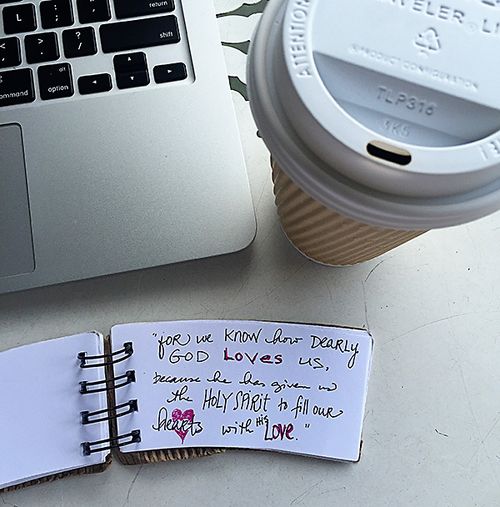 return
shift
command
option
ATTENTION
TRAVELER LI
PRODUCT CONFIGURATION
TLP316
"for we know how Dearly
GOD Loves us,
because he has given us
the HOLY SPIRIT to fill our
hearts with His Love."